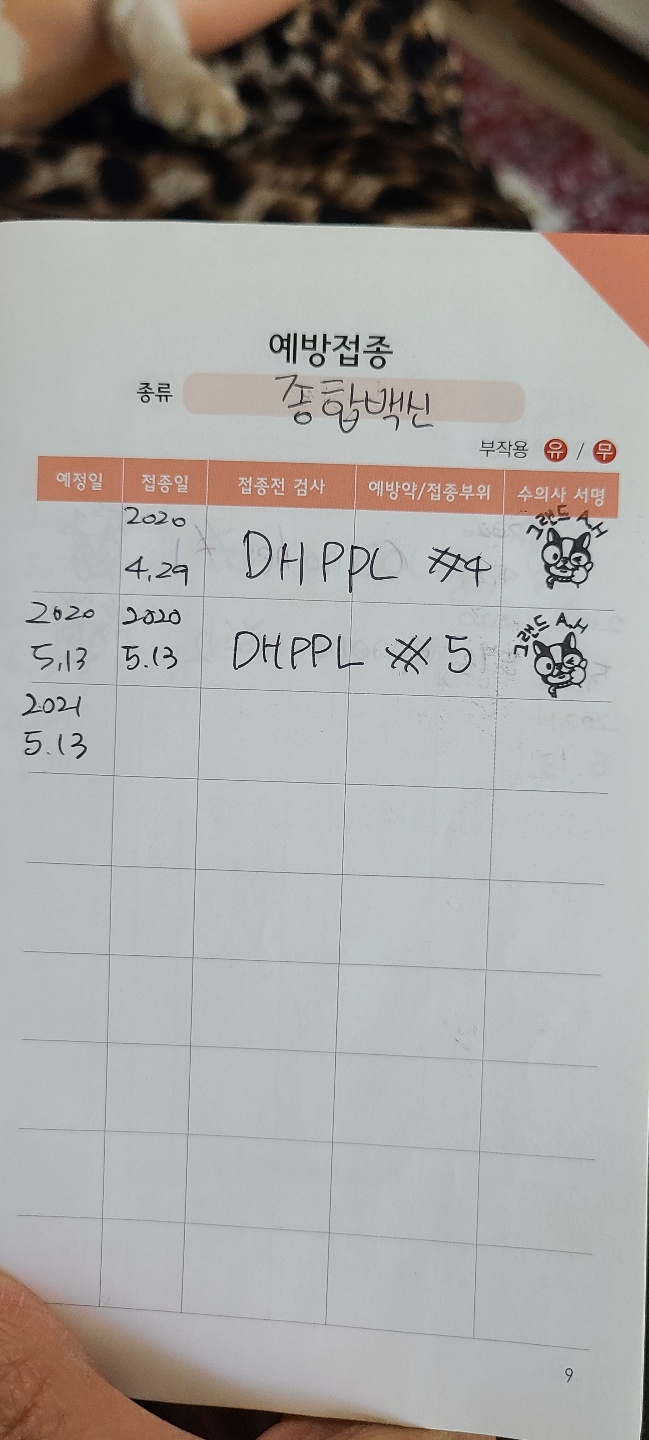 예방접종
종류 종합백신
부작용 유 / 무
예정일 접종일 접종전 검사 예방약/접종부위 수의사 서명
2020 그랜드 A.H
4.29 DHPPL #4
2020 2020 그랜드 A.H
5.13 5.13 DHPPL # 5
2021
5.13
9